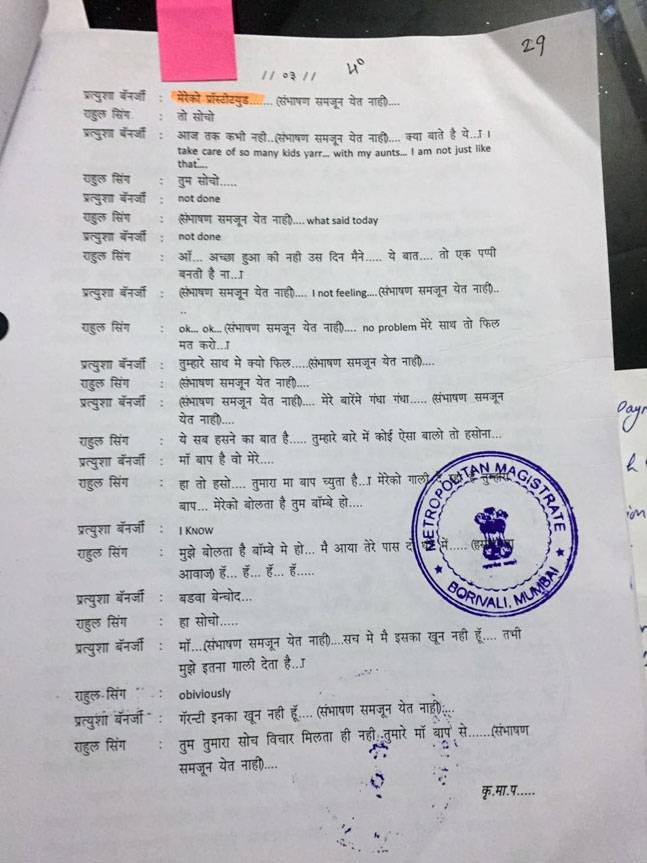 29
// ०३ //
प्रत्युशा बॅनर्जी : मेरेको प्रॉस्टीटयुड........ (संभाषण समजून येत नाही)....
राहुल सिंग : तो सोचो
प्रत्युशा बॅनर्जी : आज तक कभी नही..(संभाषण समजून येत नाही).... क्या बाते है ये...ा ।
take care of so many kids yarr... with my aunts... I am not just like
that....
राहुल सिंग : तुम सोचो.....
प्रत्युशा बॅनर्जी : not done
राहुल सिंग : (संभाषण समजून येत नाही).... what said today
प्रत्युशा बॅनर्जी : not done
राहुल सिंग : ऑ... अच्छा हुआ की नही उस दिन मैने..... ये बात.... तो एक पप्पी
बनती है ना...ा
प्रत्युशा बॅनर्जी : (संभाषण समजून येत नाही).... I not feeling....(संभाषण समजून येत नाही)..
..
राहुल सिंग : ok... ok... (संभाषण समजून येत नाही).... no problem मेरे साथ तो फिल
मत करो...ा
प्रत्युशा बॅनर्जी : तुम्हारे साथ मे क्यो फिल.....(संभाषण समजून येत नाही)....
राहुल सिंग : (संभाषण समजून येत नाही)....
प्रत्युशा बॅनर्जी : (संभाषण समजून येत नाही).... मेरे बारेंमे गंधा गंधा..... (संभाषण समजून
येत नाही)....
राहुल सिंग : ये सब हसने का बात है..... तुम्हारे बारे में कोई ऐसा बालो तो हसोना...
प्रत्युशा बॅनर्जी : मॉ बाप है वो मेरे....
राहुल सिंग : हा तो हसो.... तुमारा मा बाप च्युता है...ा मेरेको गाली तुम्हारा
बाप... मेरेको बोलता है तुम बॉम्बे हो....
प्रत्युशा बॅनर्जी : I Know
राहुल सिंग : मुझे बोलता है बॉम्बे मे हो... मै आया तेरे पास में.....
आवाज) हॅ... हॅ... हॅ... हॅ.....
प्रत्युशा बॅनर्जी : बडवा बेन्चोद...
राहुल सिंग : हा सोचो.....
प्रत्युशा बॅनर्जी : मॉ...(संभाषण समजून येत नाही)....सच मे मै इसका खून नही हूँ.... तभी
मुझे इतना गाली देता है...ा
राहुल सिंग : obiviously
प्रत्युशा बॅनर्जी : गॅरन्टी इनका खून नही हूँ.... (संभाषण समजून येत नाही)....
राहुल सिंग : तुम तुमारा सोच विचार मिलता ही नही तुमारे मॉ बाप से......(संभाषण
समजून येत नाही)....
कृ.मा.प.....
METROPOLITAN MAGISTRATE
BORIVALI, MUMBAI